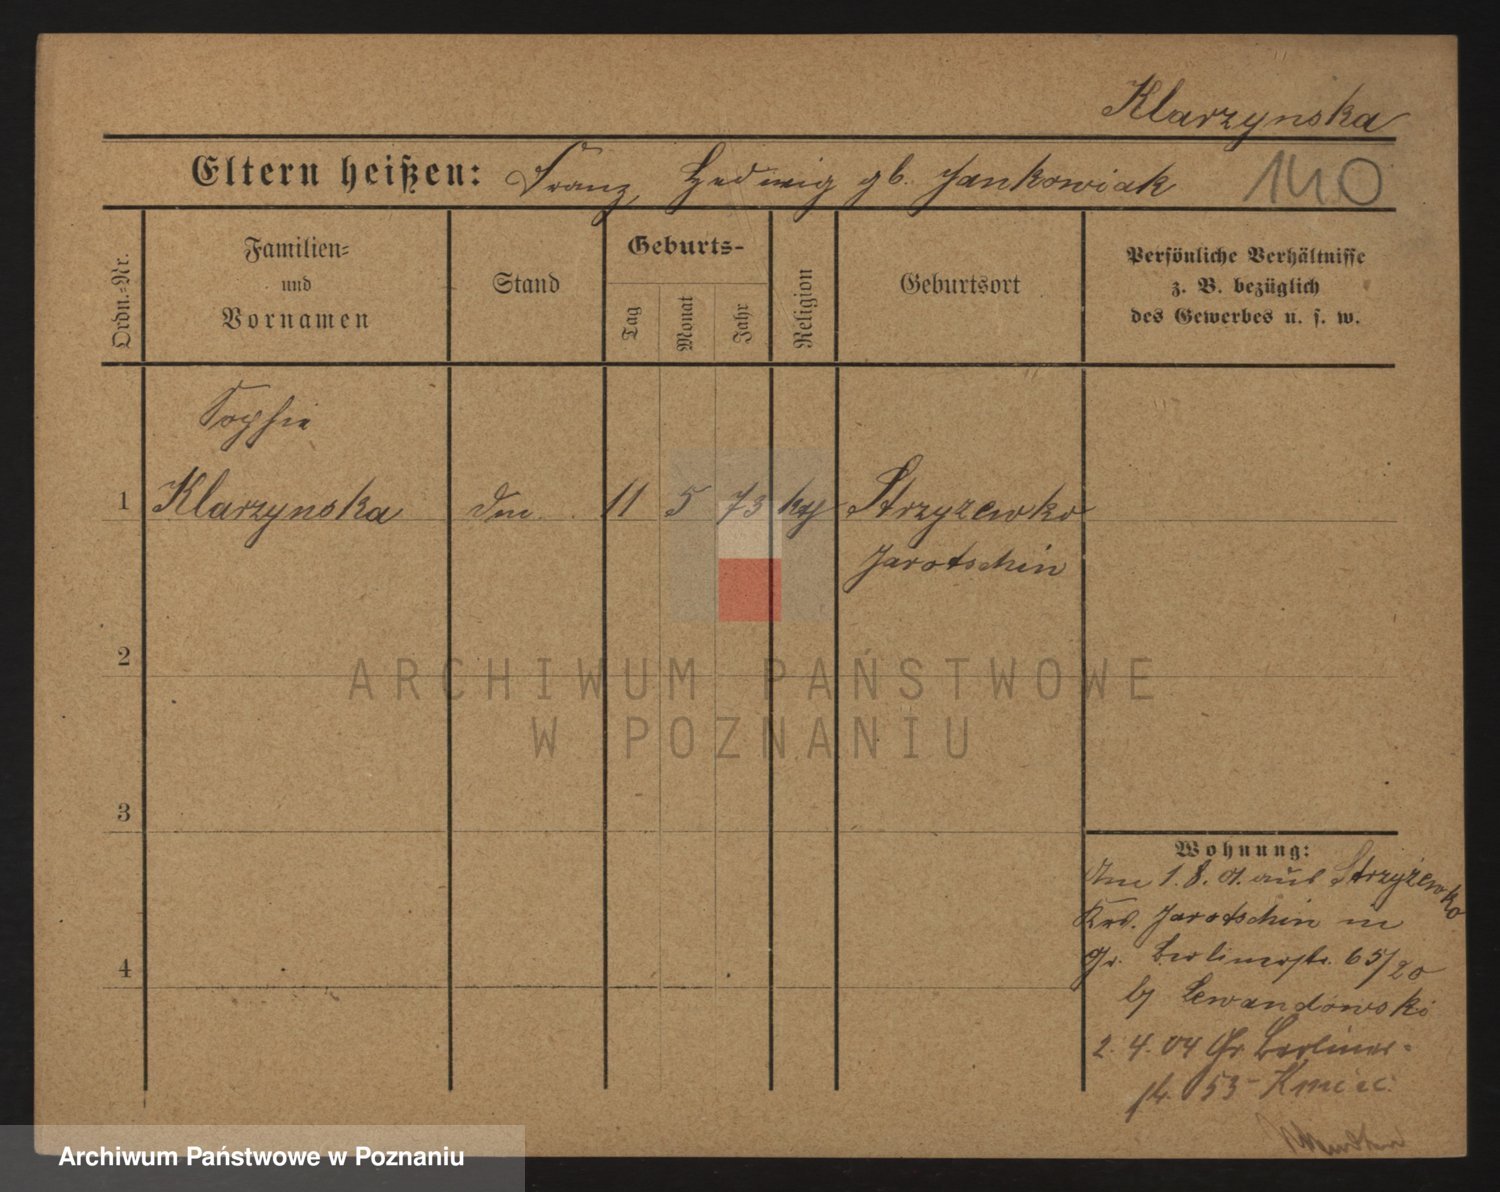 Klarzynska
Eltern heißen: Franz, Hedwig gb. Jankowiak
140
Ordn.=Nr.
Familien=
und
Vornamen
Stand
Geburts-
Tag
Monat
Jahr
Religion
Geburtsort
Persönliche Verhältnisse
z. B. bezüglich
des Gewerbes u. s. w.
Sophie
1 Klarzynska 11 5 73 kth Strzyzewko
Jarotschin
2
3
4
Wohnung:
Am 1. 8. aus Strzyżewko
Krs. Jarotschin in
Gr. Berlinerstr. 65/20
b/ Lewandowski
2. 4. 04 Gr Berliner-
str. 53 Kmiec
ARCHIWUM PAŃSTWOWE
W POZNANIU
Archiwum Państwowe w Poznaniu